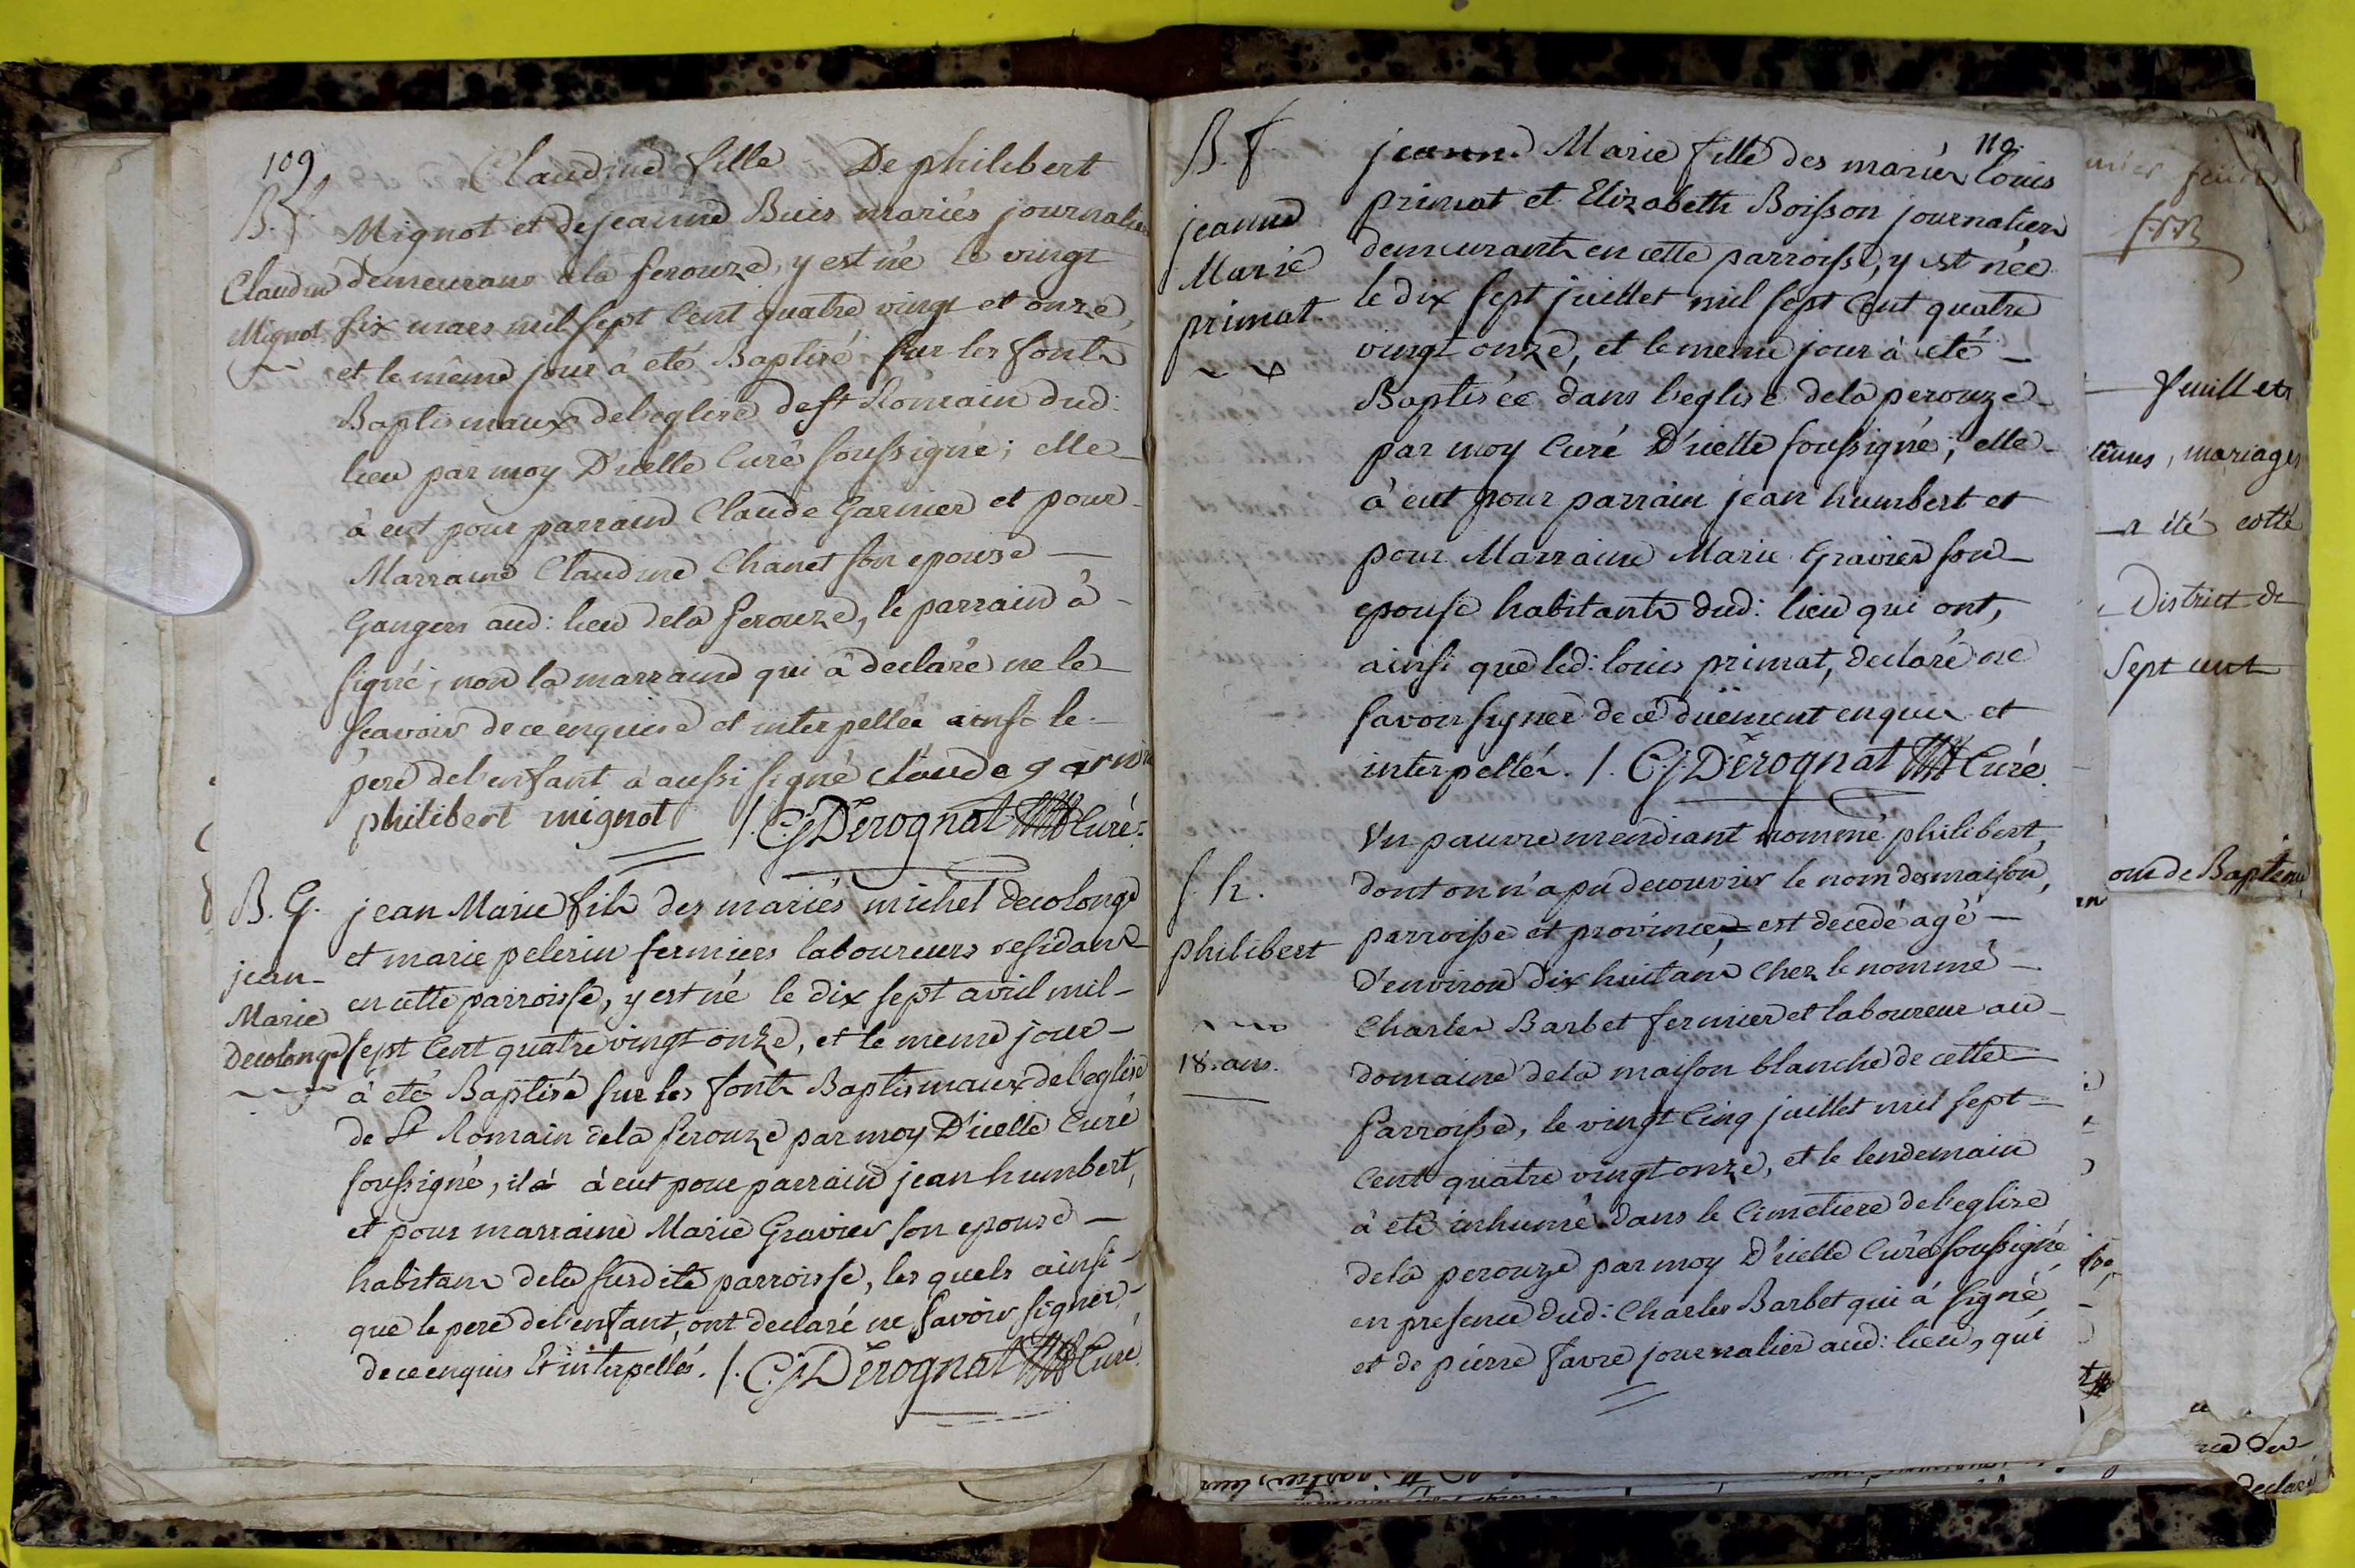 109
B. f.
Claudine
Mignot
Claudine fille De philibert
Mignot et de jeanne Buis mariés journalier
demeurans a la perouze, y est né le vingt
six mars mil sept Cent quatre vingt et onze,
et le même jour à eté Baptisé sur les fonts
Baptismaux de l'eglise de st Romain dud:
lieu par moy D'icelle Curé soussigné; elle
à eut pour parrain Claude Garnier et pour
Marraine Claudine Chanet son epouse
Gangers aud: lieu de la perouze, le parrain à
signé, non la marraine qui à declaré ne le
scavoir de ce enquise et interpellée ainsi le
pere de l'enfant à aussi signé claude garnier
philibert mignot /. C. J. Derognat Curé.
B. G.
jean
Marie
decolonge
jean Marie fils des mariés michel decolonge
et marie pelerin fermiers laboureurs residans
en cette parroisse, y est né le dix sept avril mil
sept Cent quatre vingt onze, et le meme jour
à eté Baptisé sur les fonts Baptismaux de l'eglise
de St Romain de la perouze par moy D'icelle Curé
soussigné, il à à eut pour parrain jean humbert,
et pour marraine Marie Gravier son epouse
habitans de la susdite parroisse, les quels ainsi
que le pere de l'enfant, ont declaré ne savoir signer
de ce enquis et interpellés. /. C. J. Derognat Curé
110
B. f
jeanne
Marie
primat
jeanne Marie fille des mariés louis
primat et Elizabeth Boisson journaliers
demeurants en cette parroisse, y est née
le dix sept juillet mil sept Cent quatre
vingt onze, et le meme jour à eté
Baptisée dans l'eglise de la perouze
par moy Curé D'icelle soussigné; elle
à eut pour parrain jean humbert et
pour Marraine Marie Gravier son
epouse habitants dud: lieu qui ont,
ainsi que led: louis primat, declaré ne
savoir signer de ce düement enquis et
interpellés. /. C. J. Derognat Curé
S. h.
philibert
18. ans.
Un pauvre mendiant nommé philibert,
dont on n'a pu decouvrir le nom des maison,
parroisse et province, est decedé agé
D'environ dix huit ans Chez le nommé
Charles Barbet fermier et laboureur au
domaine de la maison blanche de cette
Parroisse, le vingt Cinq juillet mil sept
Cent quatre vingt onze, et le lendemain
à eté inhumé dans le Cimetiere de l'eglise
de la perouze par moy D'icelle Curé soussigné,
en presence dud: Charles Barbet qui à signé
et de pierre favre journalier aud: lieu, qui
feuillets
mariages
a été cotté
District de
Sept cent
de Bapteme
declaré